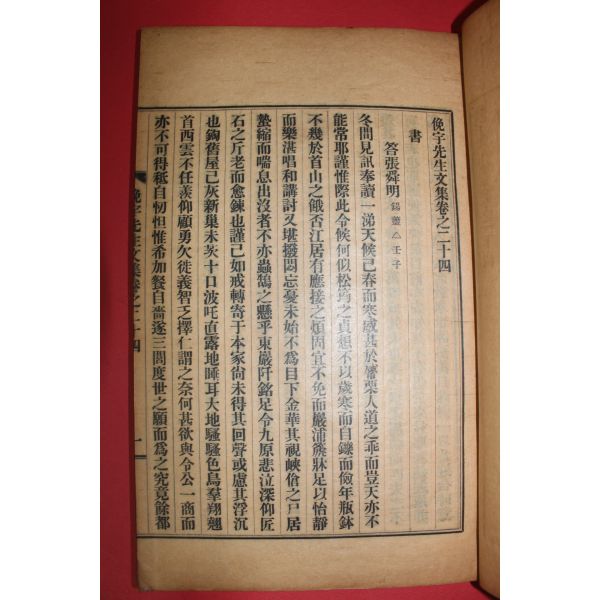 俛宇先生文集卷之二十四
書
答張舜明 錫藎 △ 壬子
冬間見訊奉讀一涕天候已春而寒威甚於觱栗人道之乖而豈天亦不
能常耶謹惟際此令候何似松筠之貞想不以歲寒而自鑠而儉年瓶鉢
不幾於首山之餓否江居有應接之煩固宜不免而巖浦簇牀足以怡靜
而樂湛唱和講討又堪撥悶忘憂未始不爲目下金華其視峽傖之尸居
蟄縮而喘息出沒者不亦蟲鵠之懸乎東巖阡銘足令九原悲泣深仰匠
石之斤老而愈鍊也謹已如戒轉寄于本家尚未得其回聲或慮其浮沉
也鉤舊屋已灰新巢未茨十口波吒直露地睡耳大地騷騷色鳥羣翔翹
首西雲不任羨仰顧勇欠徙義智乏擇仁謂之奈何甚欲與令公一商而
亦不可得秪自忉怛惟希加餐自嗇遂三閭度世之願而爲之究竟餘都
俛宇先生文集卷之二十四
一